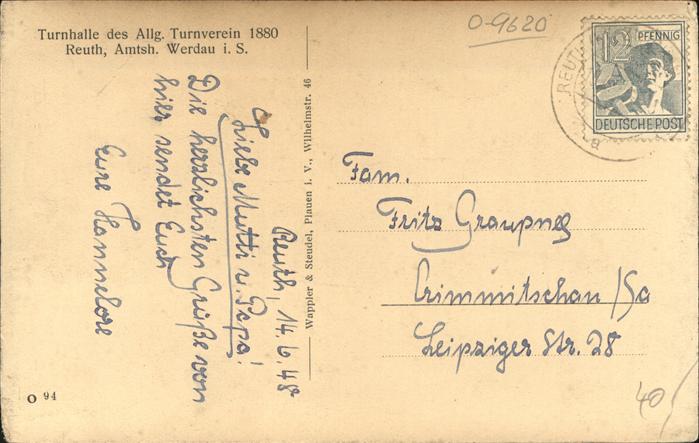 Turnhalle des Allg. Turnverein 1880
Reuth, Amtsh. Werdau i. S.
O-9620
12 PFENNIG
DEUTSCHE POST
REUTH
Reuth, 14.6.48
Liebe Mutti u. Papa!
Die herzlichsten Grüße von
hier sendet Euch
Eure Hannelore
Wappler & Steudel, Plauen i. V., Wilhelmstr. 46
Fam.
Fritz Graupner
Crimmitschau/Sa
Leipziger Str. 28
O 94
40/